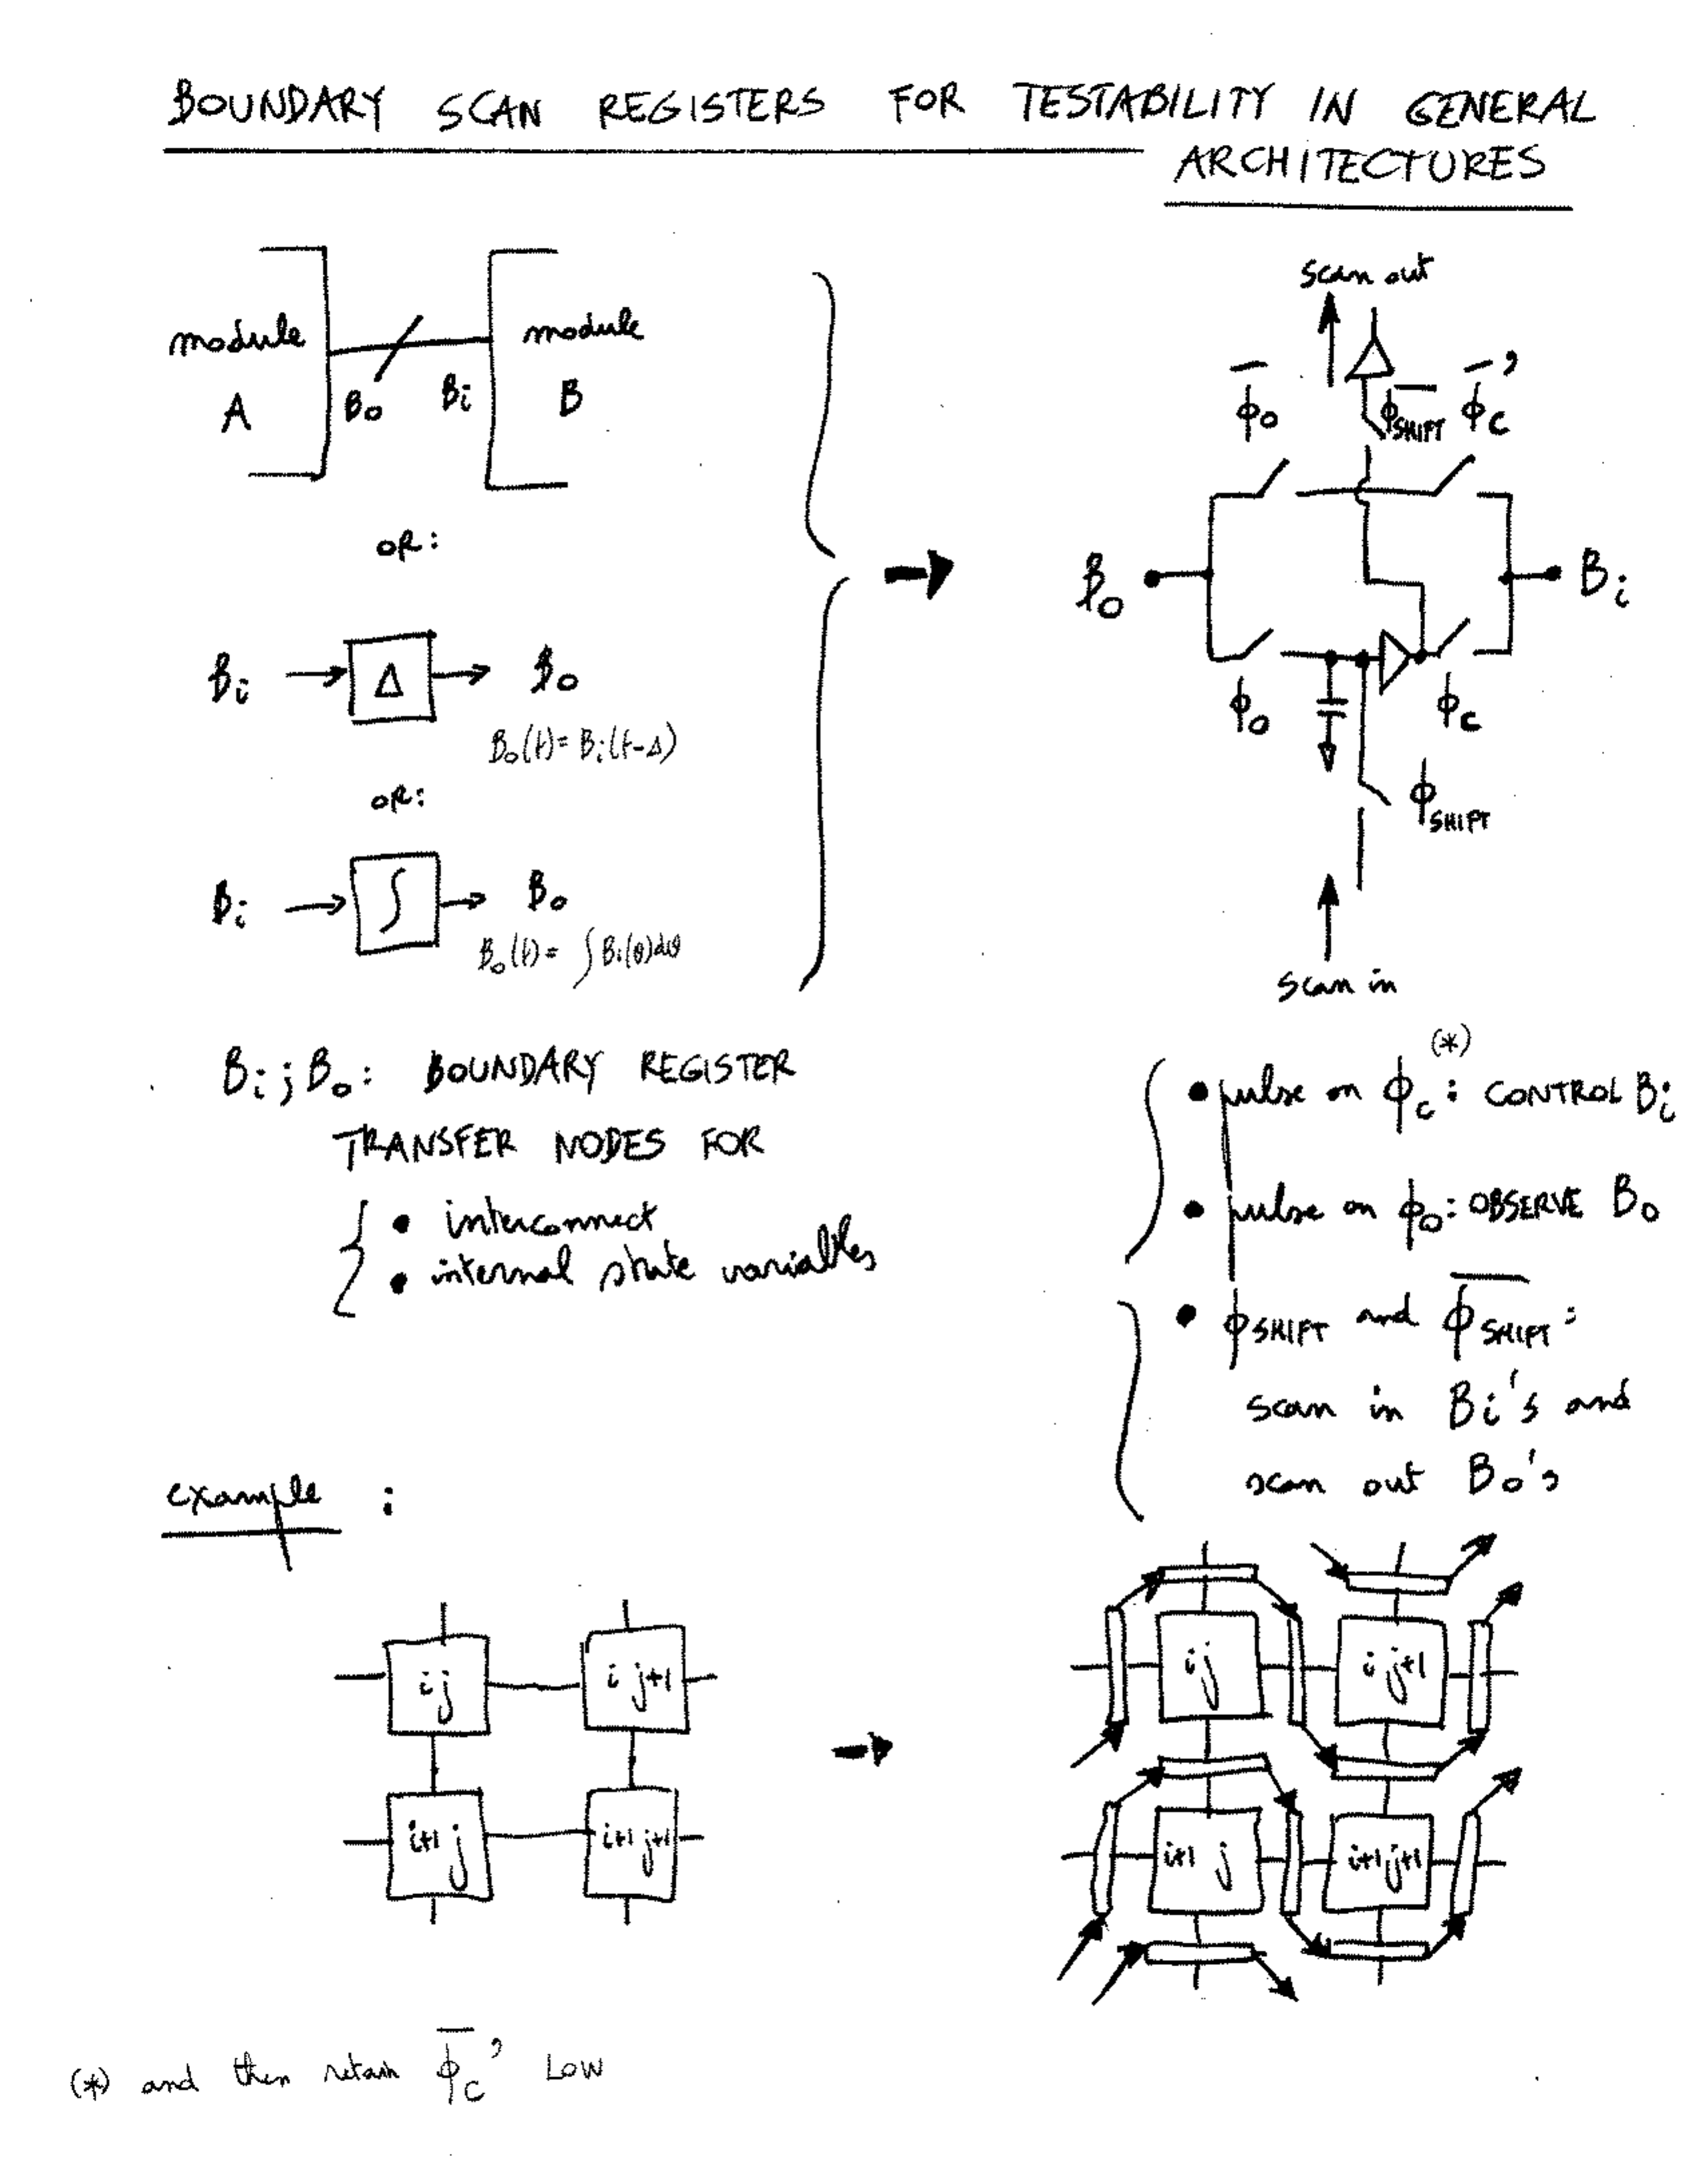 BOUNDARY SCAN REGISTERS FOR TESTABILITY IN GENERAL
ARCHITECTURES
module
A
B₀
Bᵢ
module
B
OR:
Bᵢ → Δ → B₀
B₀(t) = Bᵢ(t-Δ)
OR:
Bᵢ → ∫ → B₀
B₀(t) = ∫ Bᵢ(θ)dθ
scan out
ϕ̅₀
ϕ̅_SHIFT
ϕ̅_C'
B₀
Bᵢ
ϕ₀
ϕ_C
ϕ_SHIFT
scan in
Bᵢ; B₀: BOUNDARY REGISTER
TRANSFER NODES FOR
• interconnect
• internal state variables
• pulse on ϕ_C (*): CONTROL Bᵢ
• pulse on ϕ₀: OBSERVE B₀
• ϕ_SHIFT and ϕ̅_SHIFT:
scan in Bᵢ's and
scan out B₀'s
example :
i j
i j+1
i+1 j
i+1 j+1
i j
i j+1
i+1 j
i+1 j+1
(*) and then retain ϕ̅_C' LOW